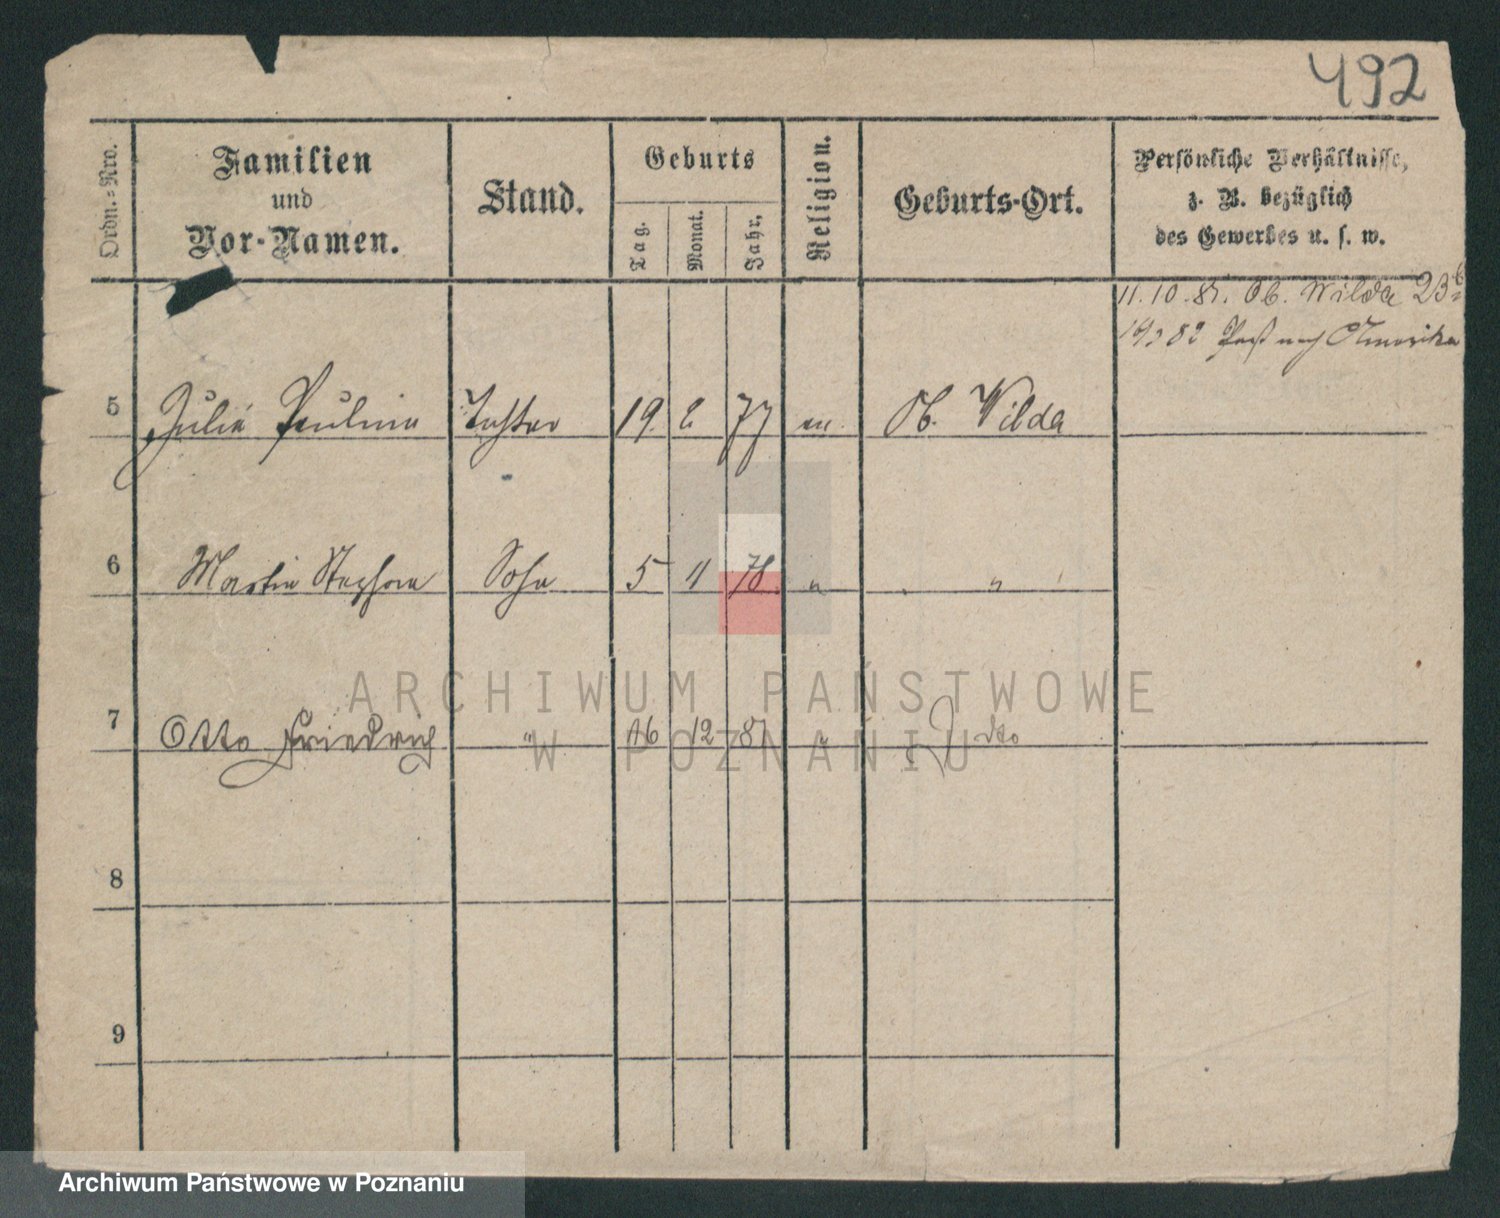 492
Ordn.-Nro.
Familien
und
Vor-Namen.
Stand.
Geburts
Tag.
Monat.
Jahr.
Religion.
Geburts-Ort.
Persönliche Verhältnisse,
z. B. bezüglich
des Gewerbes u. s. w.
11. 10. 81. Ob. Wilda 23b
82 Paß nach Amerika
5 Julie Pauline Tochter 19 2 77 ev. Ob. Wilda
6 Martin Stephan Sohn 5 11 78 " "
7 Otto Friedrich " 16 12 81 " dto
8
9
ARCHIWUM PAŃSTWOWE
W POZNANIU
Archiwum Państwowe w Poznaniu